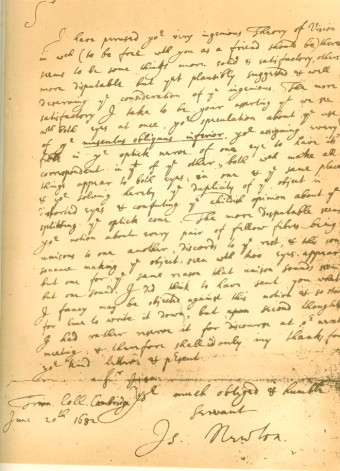 Sr
I have perused yor very ingenious Theory of Vision
in wch (to be free with you as a friend should be) there
seems to be some things more solid & satisfactory, others
more disputable but yet plausibly suggested & well
deserving ye consideration of ye ingenious. The more
satisfactory I take to be your asserting yt we see
wth both eyes at once, yor speculation about ye use
of ye musculus obliquus inferior, yor assigning every
fibre in ye optick nerve of one eye to have its
correspondent in yt of ye other, both wch make all
things appear to both eyes in one & ye same place
& yor solving hereby ye duplicity of ye object in
distorted eyes & confuting ye childish opinion about ye
splitting ye optick cone. The more disputable seems
yor notion about every pair of fellow fibres being
unisons to one another, discords to ye rest, & this con-
sonance making ye object seen with two eyes appear
but one for ye same reason that unison sounds seem
but one sound. I did think to have sent you what
I fancy may be objected against this notion & so staid
for time to write it down, but upon second thoughts
I had rather reserve it for discourse at or next
meeting: & therefore shall add only my thanks for
yor kind letter & present.
Sr
Yor much obliged & humble
Servant
Trin. Coll. Cambridge
June 20th 1682
Is. Newton.